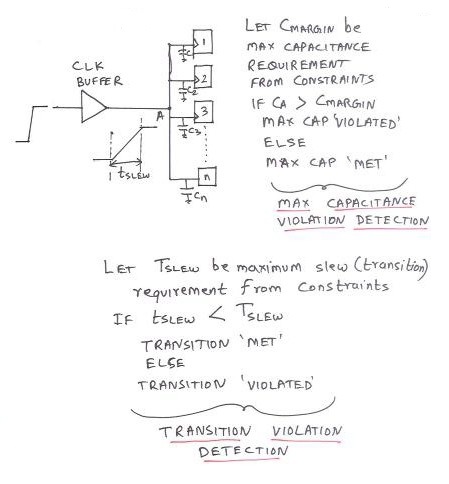 CLK
BUFFER
A
tSLEW
1
C1
2
C2
3
C3
n
Cn
LET CMARGIN be
MAX CAPACITANCE
REQUIREMENT
FROM CONSTRAINTS
IF CA > CMARGIN
MAX CAP 'VIOLATED'
ELSE
MAX CAP 'MET'
MAX CAPACITANCE
VIOLATION DETECTION
LET TSLEW be maximum slew (transition)
requirement from constraints
IF tSLEW < TSLEW
TRANSITION 'MET'
ELSE
TRANSITION 'VIOLATED'
TRANSITION VIOLATION
DETECTION